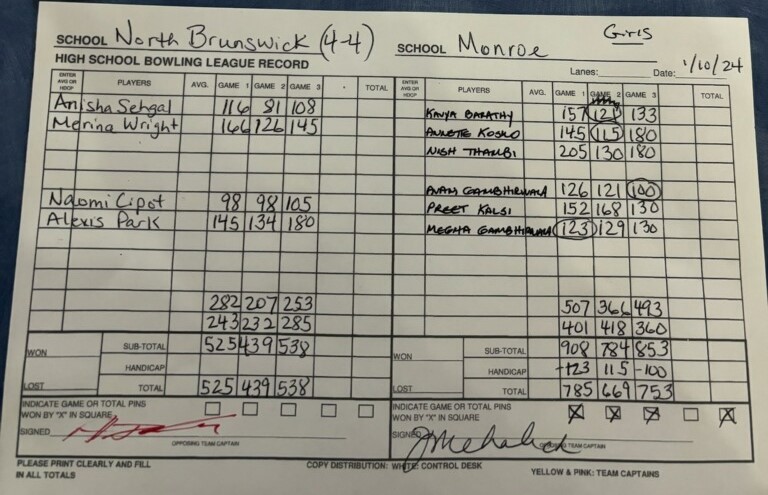 Girls
SCHOOL North Brunswick (4-4) SCHOOL Monroe
HIGH SCHOOL BOWLING LEAGUE RECORD Lanes: Date: 1/10/24
ENTER AVG OR HDCP PLAYERS AVG. GAME 1 GAME 2 GAME 3 TOTAL ENTER AVG OR HDCP PLAYERS AVG. GAME 1 GAME 2 GAME 3 TOTAL
Anisha Sehgal 116 81 108 KAVYA BARATHY 157 121 133
Merina Wright 166 126 145 ANNETTE KOSKO 145 115 180
NISH THAMBI 205 130 180
Naomi Cipot 98 98 105 AVANI GAMBHIRWALA 126 121 100
Alexis Park 145 134 180 PREET KALSI 152 168 130
MEGHA GAMBHIRWALA 123 129 130
282 207 253 507 366 493
243 232 285 401 418 360
WON SUB-TOTAL 525 439 538 WON SUB-TOTAL 908 784 853
HANDICAP HANDICAP -123 115 -100
LOST TOTAL 525 439 538 LOST TOTAL 785 669 753
INDICATE GAME OR TOTAL PINS WON BY "X" IN SQUARE INDICATE GAME OR TOTAL PINS WON BY "X" IN SQUARE X X X X
SIGNED SIGNED
OPPOSING TEAM CAPTAIN OPPOSING TEAM CAPTAIN
PLEASE PRINT CLEARLY AND FILL IN ALL TOTALS COPY DISTRIBUTION: WHITE: CONTROL DESK YELLOW & PINK: TEAM CAPTAINS